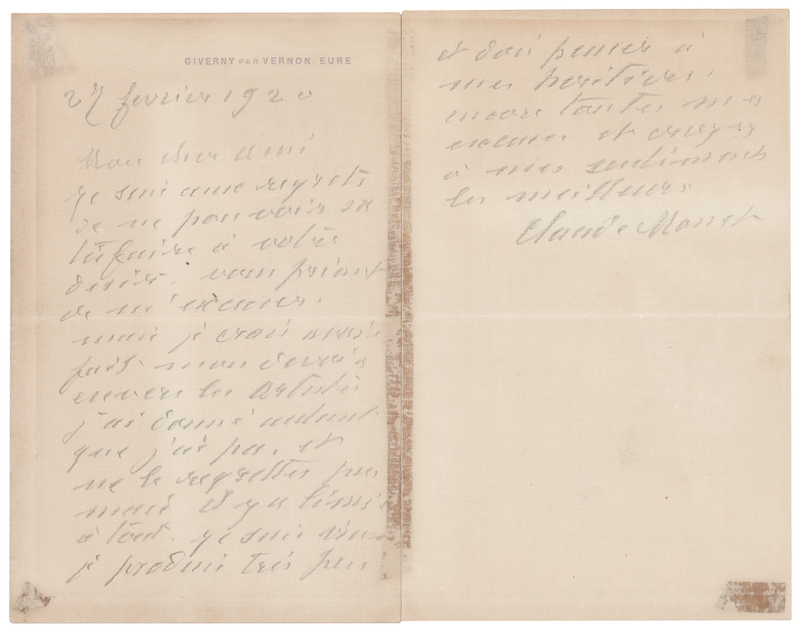 GIVERNY PAR VERNON EURE
27 fevrier 1920
Mon cher ami
je suis aux regrets
de ne pouvoir sa
tisfaire à votre
désir, vous priant
de m'excuser.
mais je crois avoir
fait mon devoir
envers les artistes
j'ai donné autant
que j'ai pu, et
ne le regrette pas
mais il y a limite
à tout. je suis vieux
je produis très peu
et dois penser à
mes héritiers.
encore toutes mes
excuses et croyez
à mes sentiments
les meilleurs
Claude Monet